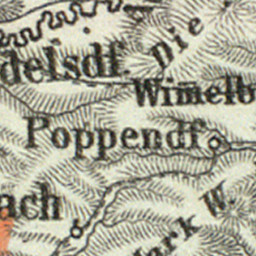 delsdf.
Die
Wimelb
Poppendf.
ach
Mark W.